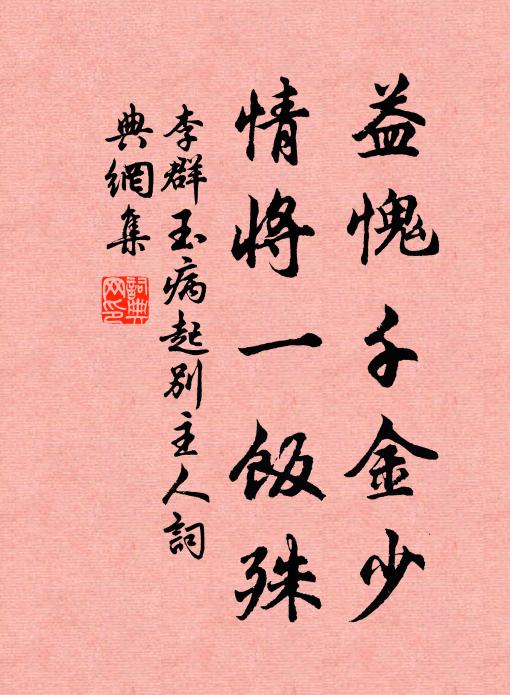 益愧千金少
情將一飯殊
李群玉病起別主人詞
典網集
詞典
网印